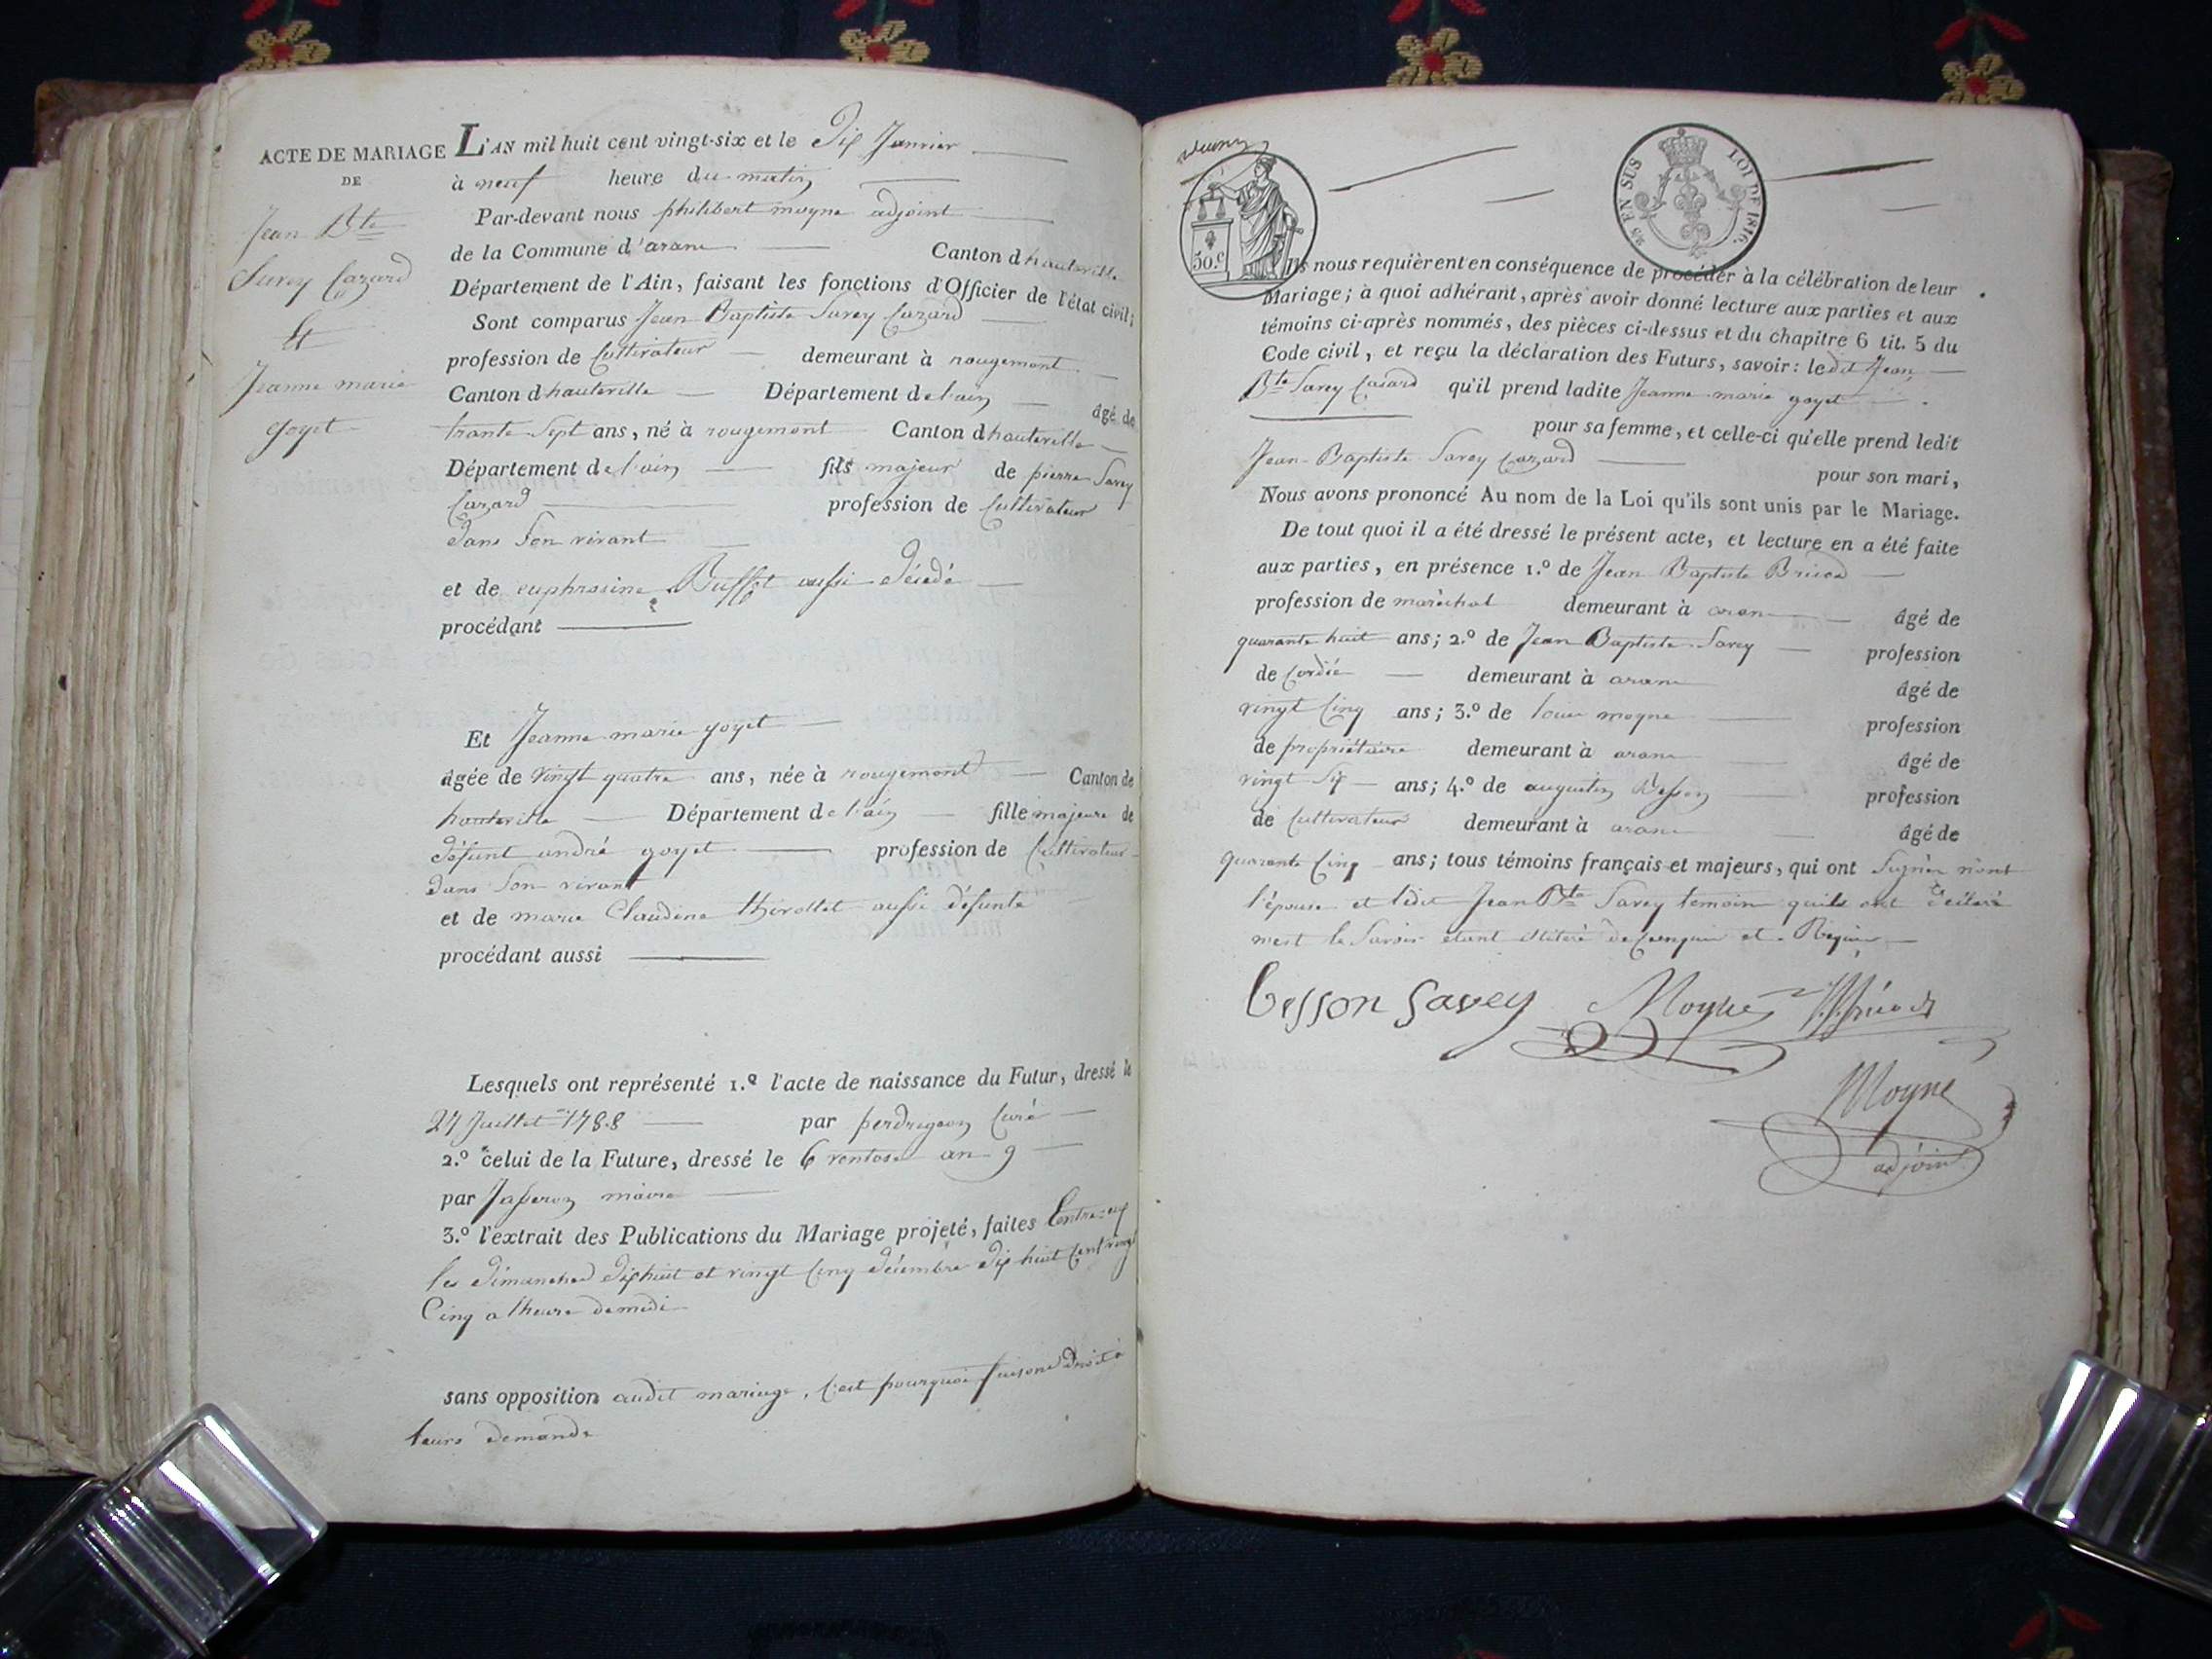 ACTE DE MARIAGE
DE
Jean Bte
Savey Cazard
Et
Jeanne marie
goyet
L'AN mil huit cent vingt-six et le Dix Janvier
à neuf heure du matin
Par-devant nous philibert moyne adjoint
de la Commune d'aranc Canton d hauteville
Département de l'Ain, faisant les fonctions d'Officier de l'état civil;
Sont comparus Jean Baptiste Savey Cazard
profession de Cultivateur demeurant à rougemont
Canton d hauteville Département de l'ain âgé de
trante Sept ans, né à rougemont Canton d hauteville
Département de l'ain fils majeur de pierre Savey
Cazard profession de Cultivateur
dans Son vivant
et de euphrosine Buffet aussi décédé
procédant
Et Jeanne marie goyet
âgée de vingt quatre ans, née à rougemont Canton de
hauteville Département de l'ain fille majeure de
défunt andré goyet profession de Cultivateur
dans Son vivant
et de marie Claudine thivollet aussi défunte
procédant aussi
Lesquels ont représenté 1.º l'acte de naissance du Futur, dressé le
27 Juillet 1788 par perdrigeon Curé
2.º celui de la Future, dressé le 6 ventose an 9
par Jasseron maire
3.º l'extrait des Publications du Mariage projeté, faites Entre eux
les dimanches dixhuit et vingt Cinq décembre dix huit Cent vingt
Cinq a l'heure de midi
sans opposition audit mariage, C'est pourquoi faisons droit à
leurs demande
50.c
25 EN SUS
LOI DE 1816.
Ils nous requièrent en conséquence de procéder à la célébration de leur
Mariage; à quoi adhérant, après avoir donné lecture aux parties et aux
témoins ci-après nommés, des pièces ci-dessus et du chapitre 6 tit. 5 du
Code civil, et reçu la déclaration des Futurs, savoir: ledit Jean
Bte Savey Casard qu'il prend ladite Jeanne marie goyet
pour sa femme, et celle-ci qu'elle prend ledit
Jean Baptiste Savey Cazard pour son mari,
Nous avons prononcé Au nom de la Loi qu'ils sont unis par le Mariage.
De tout quoi il a été dressé le présent acte, et lecture en a été faite
aux parties, en présence 1.º de Jean Baptiste
profession de maréchal demeurant à aranc âgé de
quarante huit ans; 2.º de Jean Baptiste Savey profession
de Cordié demeurant à aranc âgé de
vingt Cinq ans; 3.º de louis moyne profession
de propriétaire demeurant à aranc âgé de
vingt Six ans; 4.º de augustin Besson profession
de Cultivateur demeurant à aranc âgé de
quarante Cinq ans; tous témoins français et majeurs, qui ont Signer non
l'épouse et ledit Jean Bte Savey temoin qui ont déclaré
le Savoir étant de ce enquis et Requis
besson Savey Moyne
Moyne
adjoint